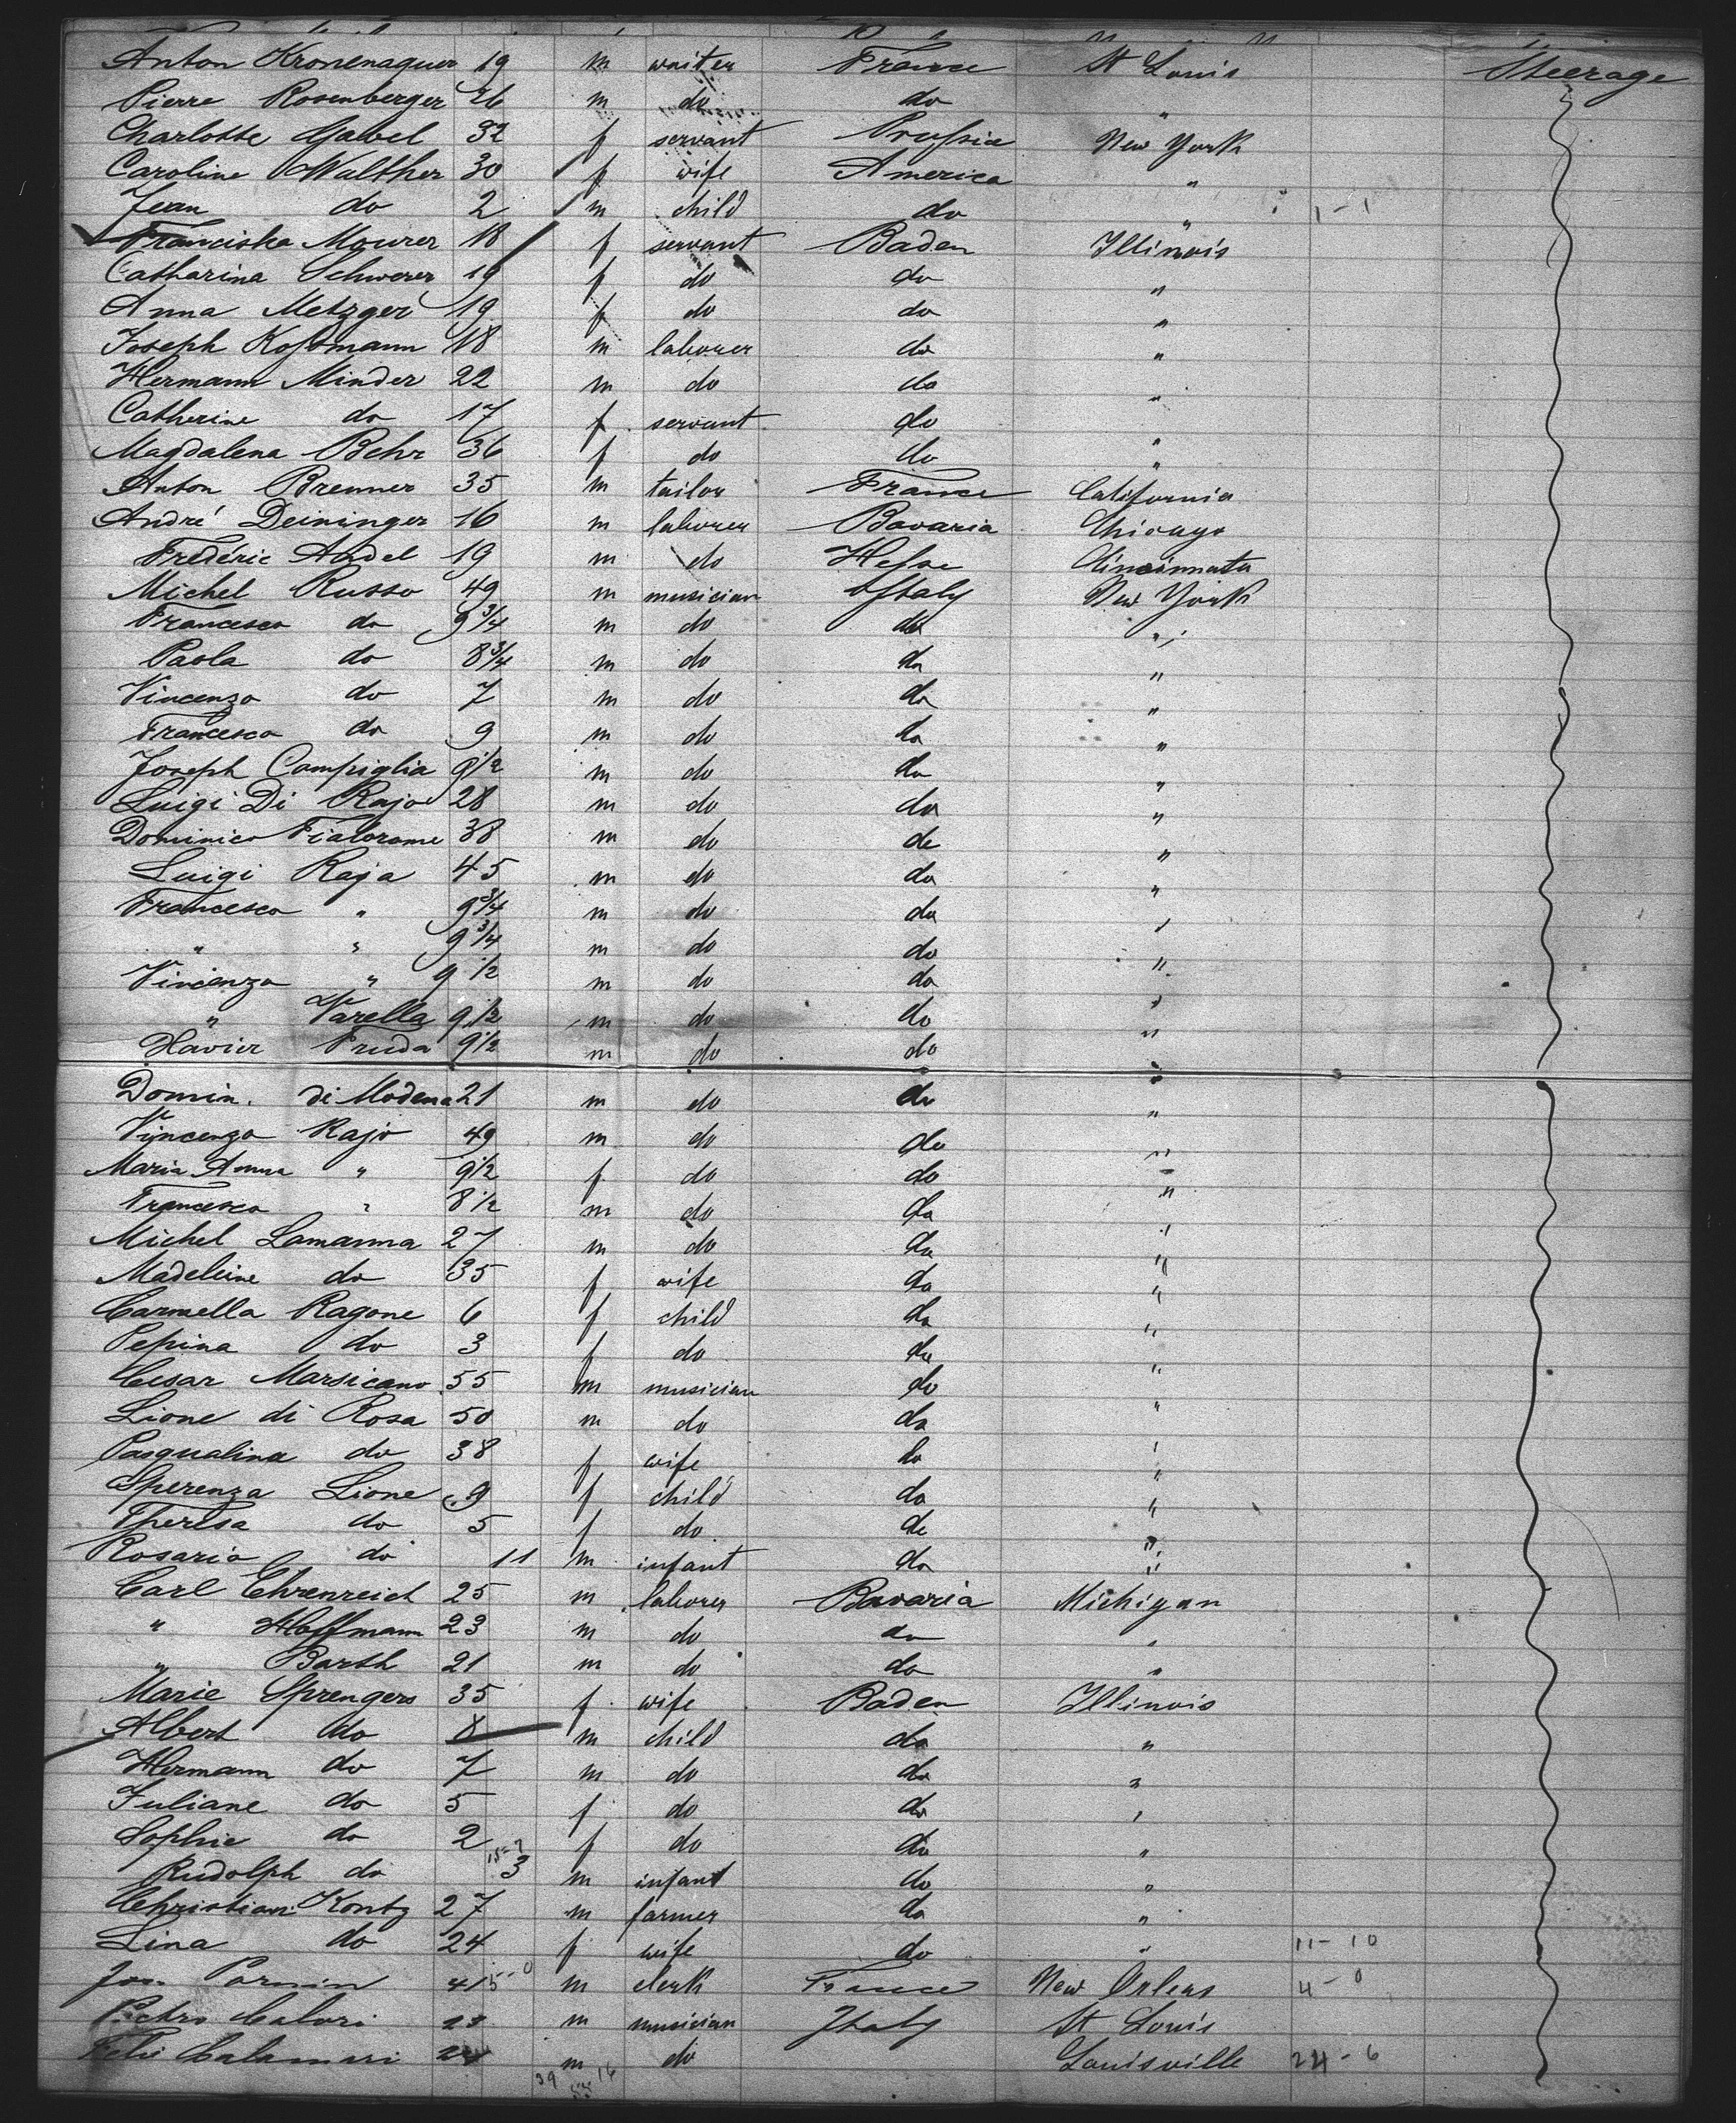 Anton Kronenaquer 19 m waiter France St Louis Steerage
Pierre Rosenberger 26 m do do "
Charlotte Gabel 32 f servant Prussia New York
Caroline Walther 30 f wife America "
Jean do 2 m child do " 1-1
Franciska Mourer 18 f servant Baden Illinois
Catharina Schwerer 19 f do do "
Anna Metzger 19 f do do "
Joseph Kossmann 18 m laborer do "
Hermann Minder 22 m do do "
Catherine do 17 f servant do "
Magdalena Behr 36 f do do "
Anton Brenner 35 m tailor France California
André Deininger 16 m laborer Bavaria Chicago
Fréderic Andel 19 m do Hesse Cincinnata
Michel Russo 49 m musician Italy New York
Francesco do 9 3/4 m do do "
Paola do 8 3/4 m do do "
Vincenzo do 7 m do do "
Francesco do 9 m do do "
Joseph Campiglia 9 1/2 m do do "
Luigi Di Rajo 28 m do do "
Dominico Fialorame 38 m do do "
Luigi Raja 45 m do do "
Francesco " 9 3/4 m do do "
" " 9 3/4 m do do "
Vincenzo " 9 1/2 m do do "
" Varella 9 1/2 m do do "
Xavier Fruda 9 1/2 m do do "
Domin. di Modena 21 m do do "
Vincenzo Rajo 49 m do do "
Maria Anna " 9 1/2 f do do "
Francesco " 8 1/2 m do do "
Michel Lamanna 27 m do do "
Madeleine do 35 f wife do "
Carmella Ragone 6 f child do "
Pepina do 3 f do do "
Cesar Marsicano 55 m musician do "
Lione di Rosa 50 m do do "
Pasqualina do 38 f wife do "
Sperenza Lione 9 f child do "
Theresa do 5 f do do "
Rosario do 11 m infant do "
Carl Ehrenreich 25 m laborer Bavaria Michigan
" Hoffmann 23 m do do "
" Barth 21 m do do "
Marie Sprengers 35 f wife Baden Illinois
Albert do 8 m child do "
Hermann do 7 m do do "
Juliane do 5 f do do "
Sophie do 2 f do do "
Rudolph do 3 m infant do "
Christian Kontz 27 m farmer do "
Lina do 24 f wife do " 11-10
Jos. Parmin 41 m clerk France New Orleas 4-0
Pietro Calori m musician Italy St Louis
Felix Calamari m do Louisville 24-6